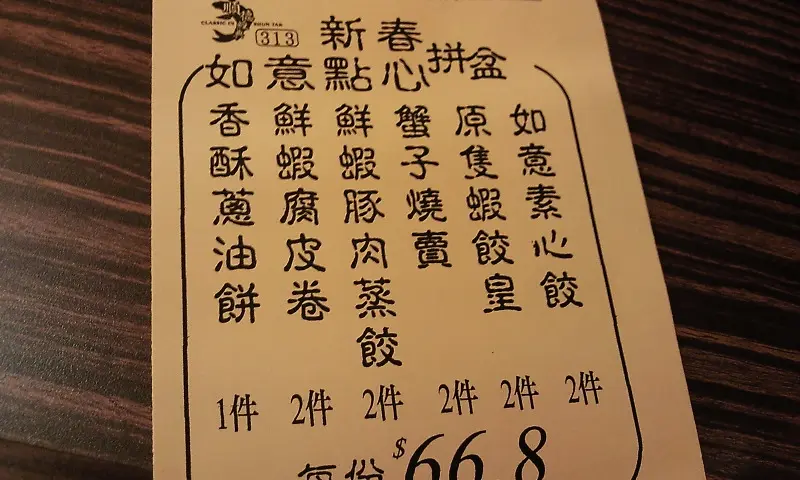 順德
CLASSIC IN SHUN TAK
313
新春
如意點心拼盆
如意素心餃
原隻蝦餃皇
蟹子燒賣
鮮蝦豚肉蒸餃
鮮蝦腐皮卷
香酥蔥油餅
1件 2件 2件 2件 2件 2件
每份 $66.8